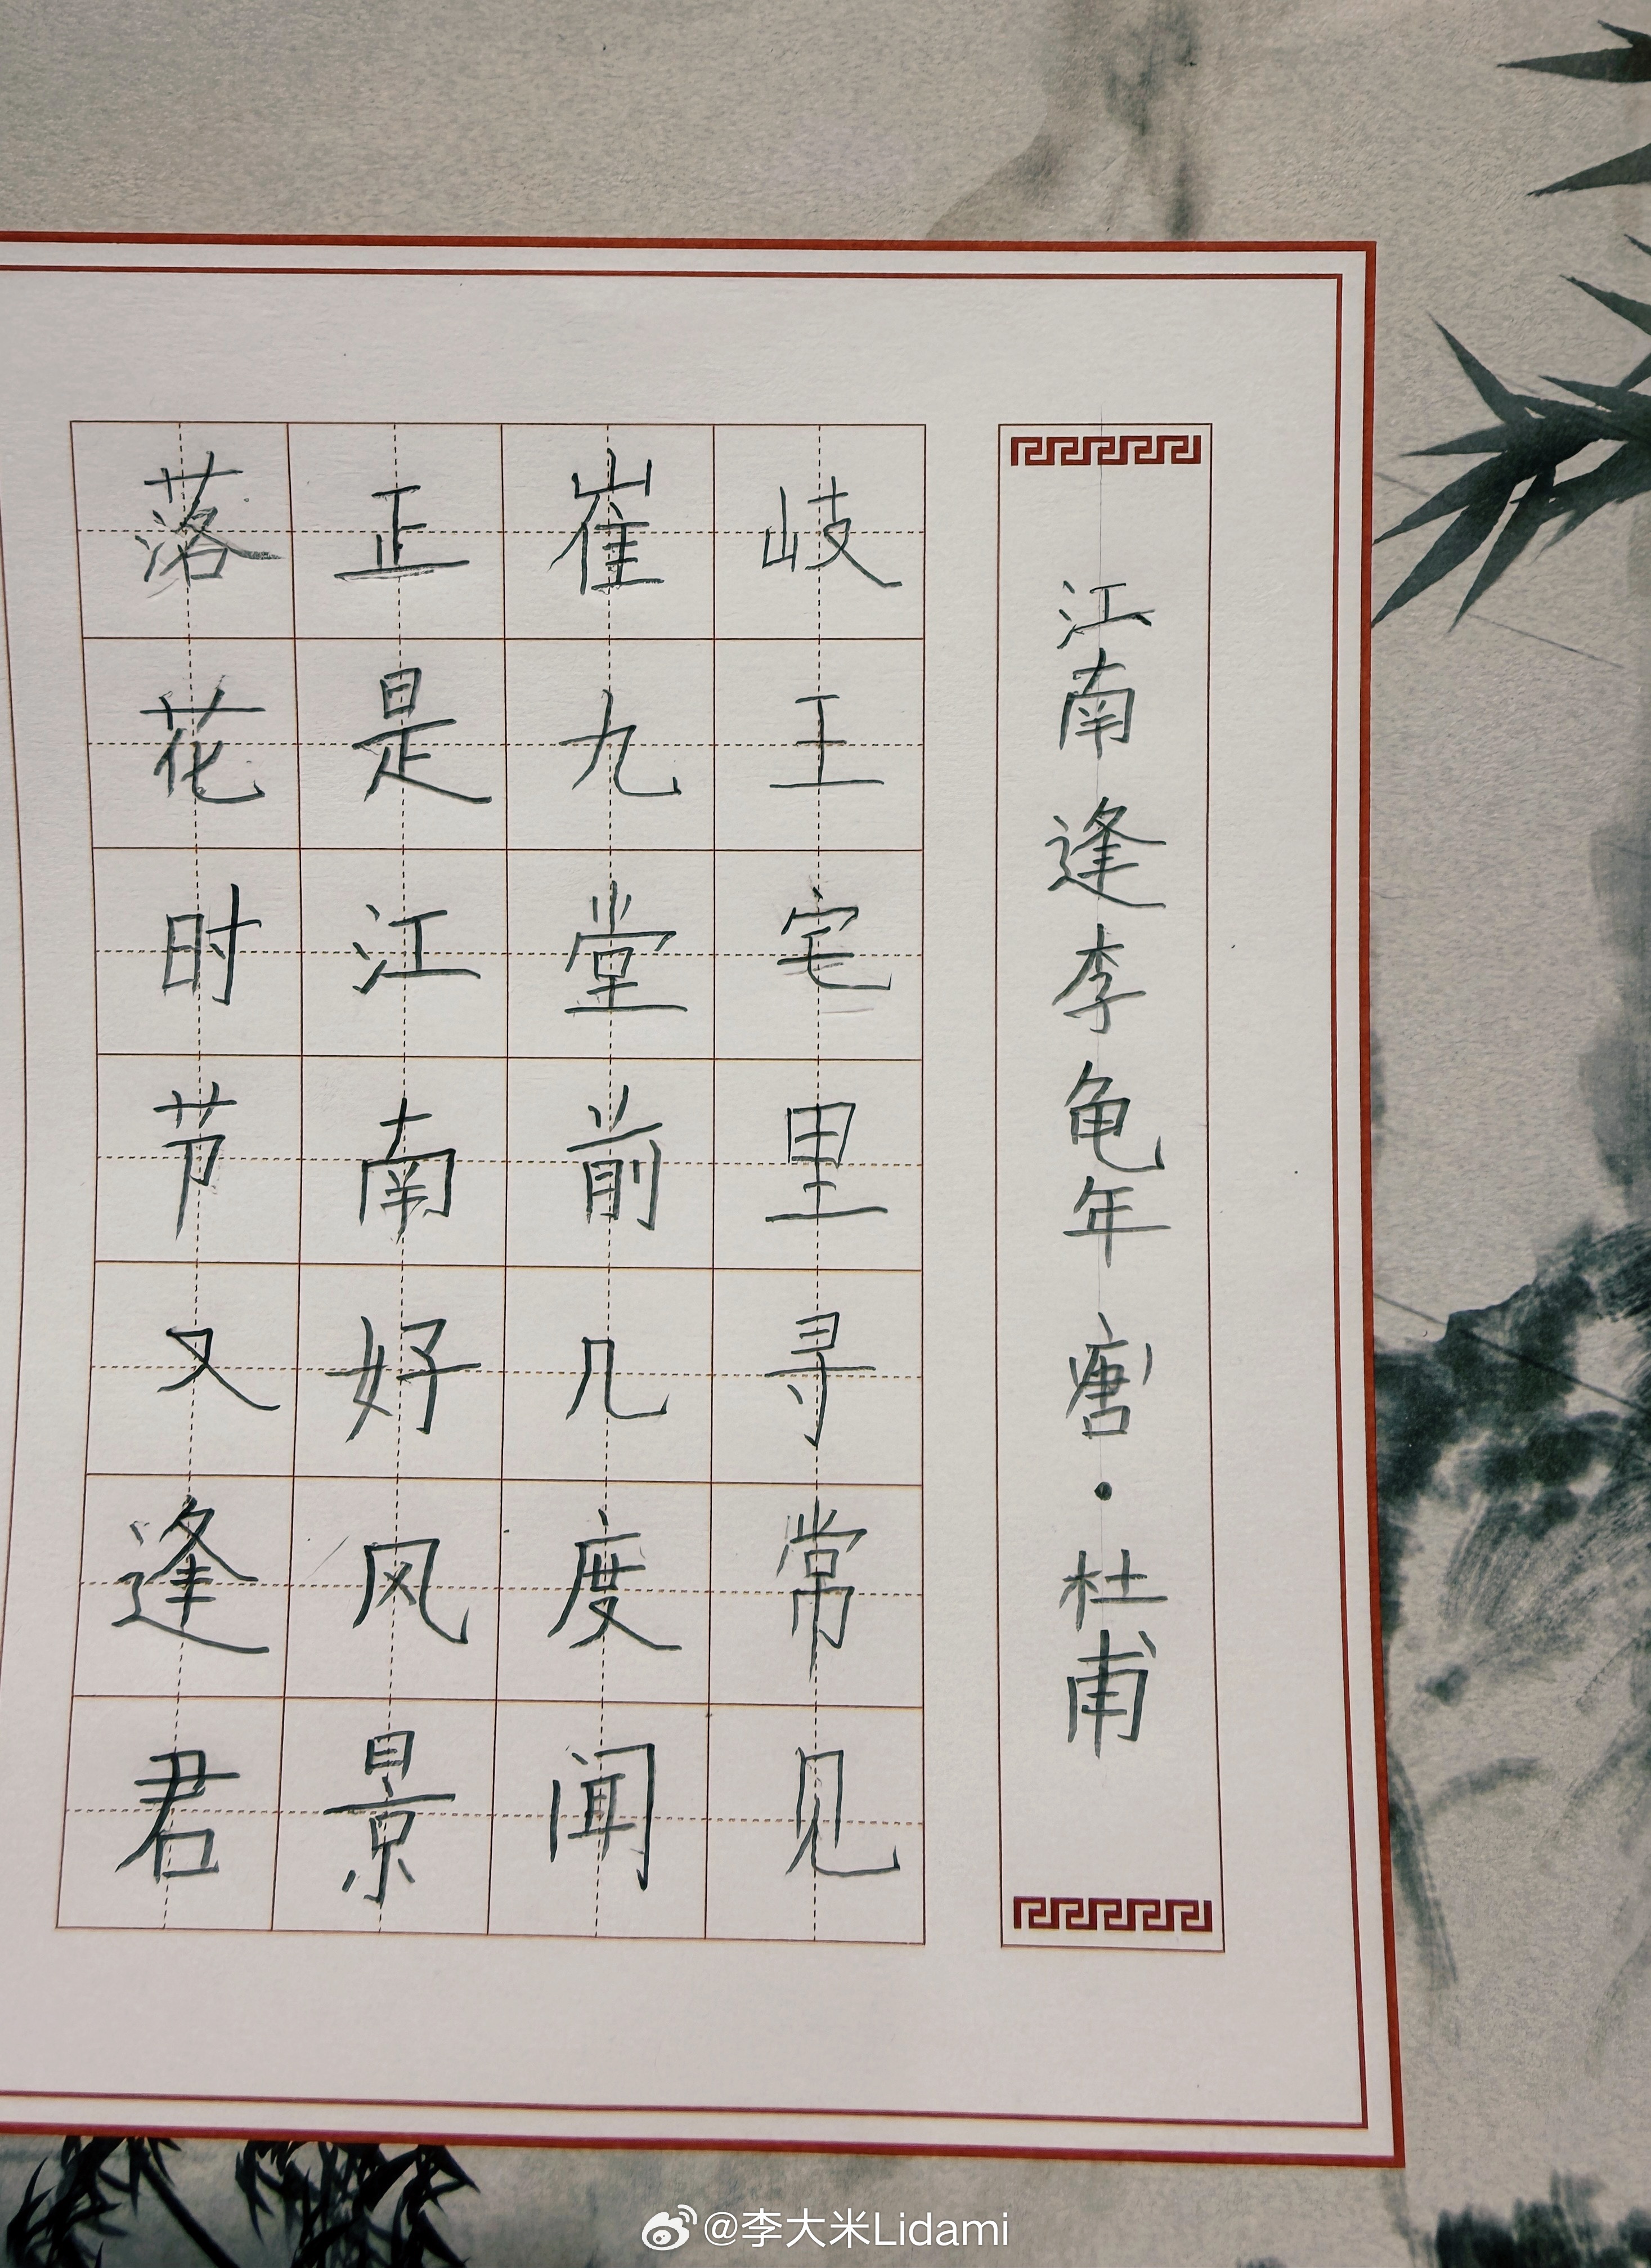 江南逢李龟年 唐·杜甫
岐王宅里寻常见
崔九堂前几度闻
正是江南好风景
落花时节又逢君
@李大米Lidami